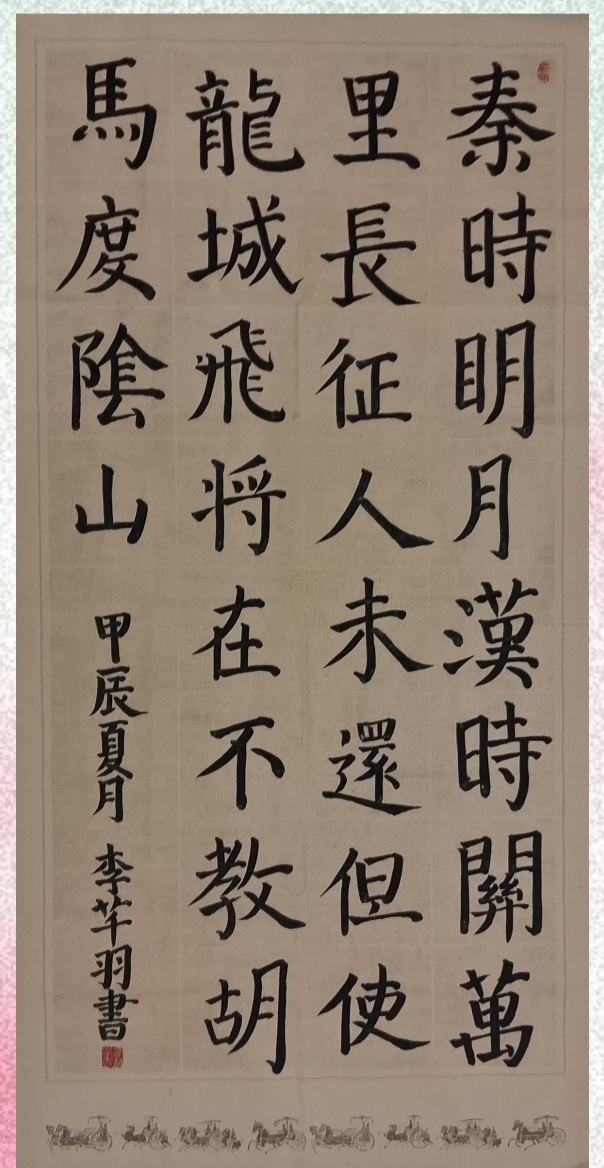 秦時明月漢時關萬
里長征人未還但使
龍城飛将在不教胡
馬度陰山
甲辰夏月 李芊羽書